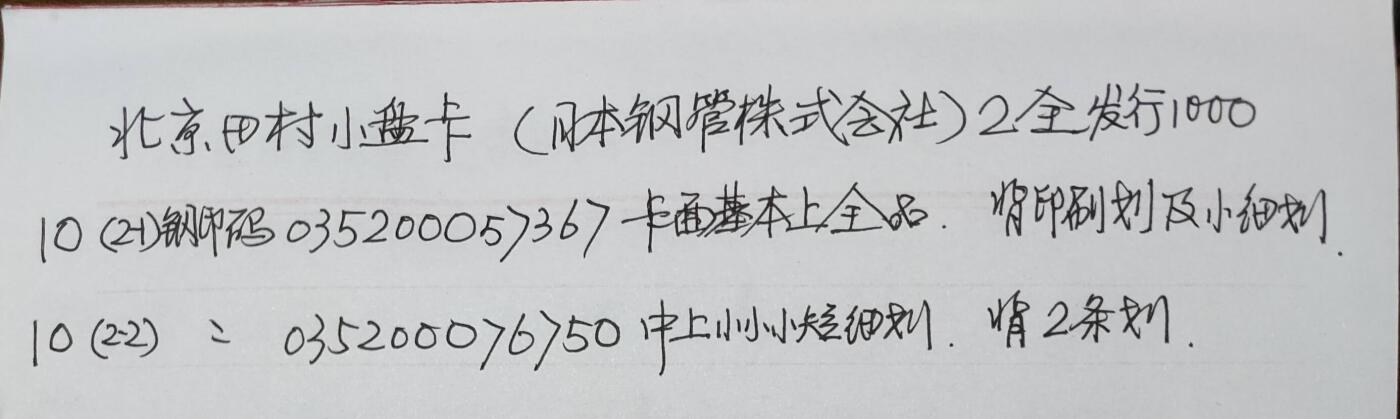 北京田村小盘卡（日本钢管株式会社）2全发行1000
10 (2-1)钢印码035200057367卡面基本上全品. 背印刷划及小细划.
10 (2-2) 〃 035200076750中上小小小短细划. 背2条划.